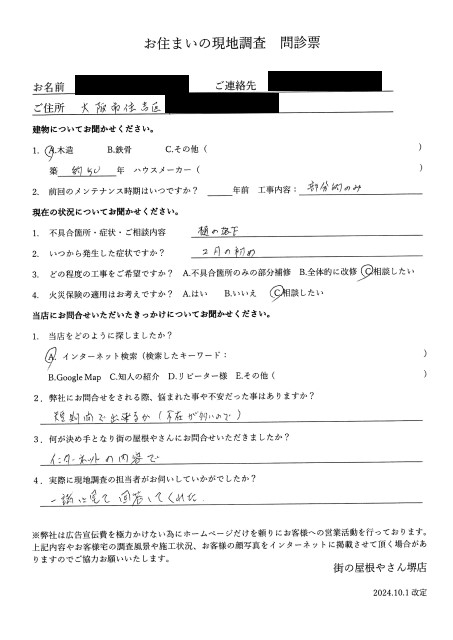 お住まいの現地調査　問診票
お名前　ご連絡先
ご住所　大阪市住吉区
建物についてお聞かせください。
1. A.木造　B.鉄骨　C.その他（　）
築　約50　年　ハウスメーカー（　）
2. 前回のメンテナンス時期はいつですか？　年前　工事内容：部分的のみ
現在の状況についてお聞かせください。
1. 不具合箇所・症状・ご相談内容　樋の落下
2. いつから発生した症状ですか？　2月の初め
3. どの程度の工事をご希望ですか？　A.不具合箇所のみの部分補修　B.全体的に改修　C.相談したい
4. 火災保険の適用はお考えですか？　A.はい　B.いいえ　C.相談したい
当店にお問合せいただいたきっかけについてお聞かせください。
1. 当店をどのように探しましたか？
A. インターネット検索（検索したキーワード：　）
B.Google Map　C.知人の紹介　D.リピーター様　E.その他（　）
2. 弊社にお問合せをされる際、悩まれた事や不安だった事はありますか？
短期間で出来るか（不在が多いので）
3. 何が決め手となり街の屋根やさんにお問合せいただきましたか？
インターネットの内容で
4. 実際に現地調査の担当者がお伺いしていかがでしたか？
一緒に見て回答してくれた.
※弊社は広告宣伝費を極力かけない為にホームページだけを頼りにお客様への営業活動を行っております。
上記内容やお客様宅の調査風景や施工状況、お客様の顔写真をインターネットに掲載させて頂く場合があ
りますのでご協力お願いいたします。
街の屋根やさん堺店
2024.10.1 改定